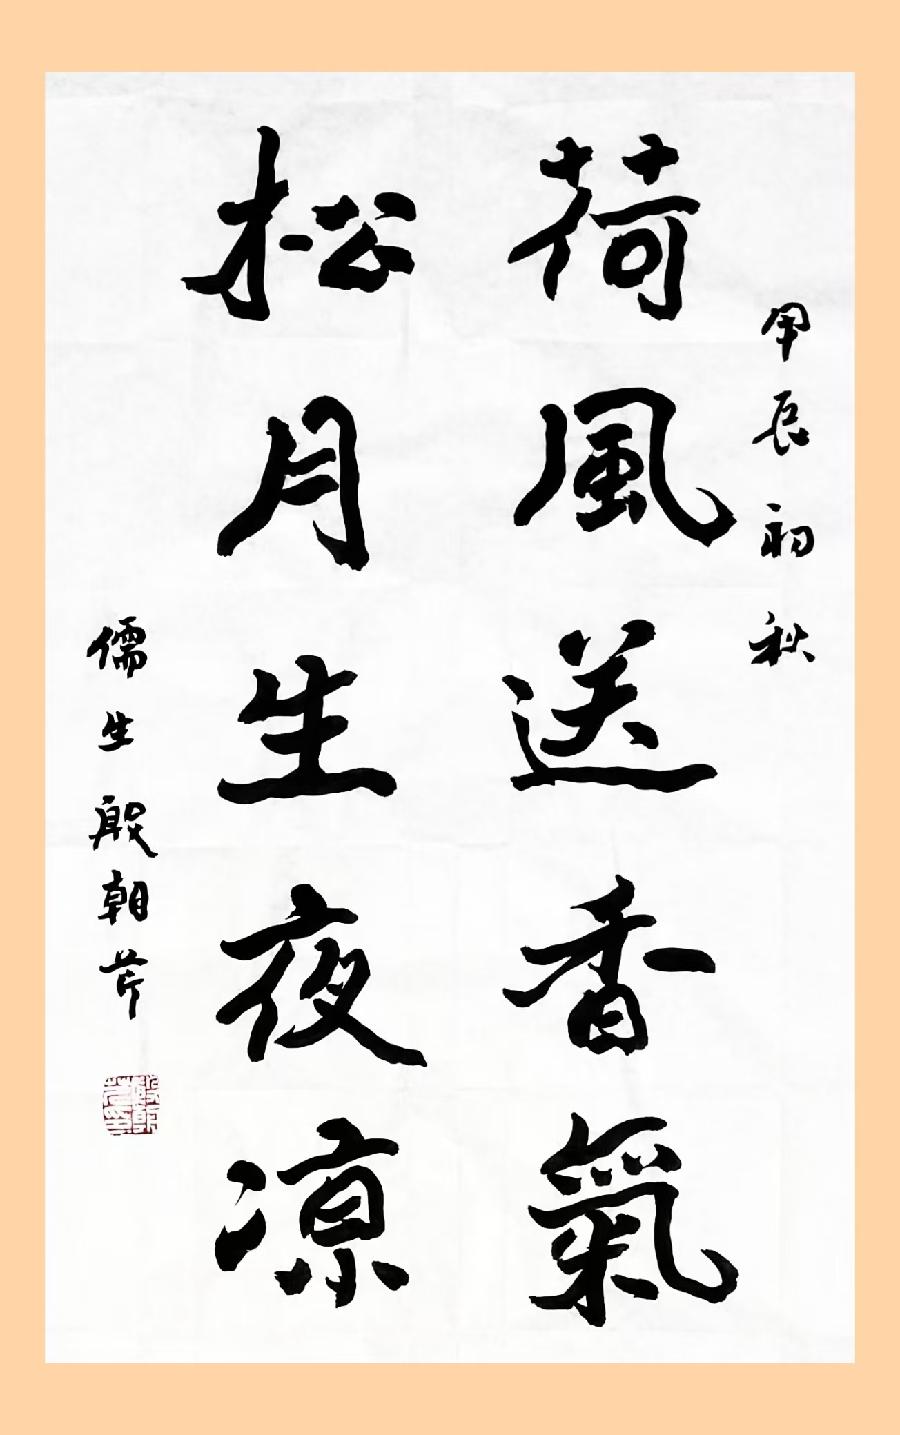 甲辰初秋
荷風送香氣
松月生夜凉
儒生殷朝芹